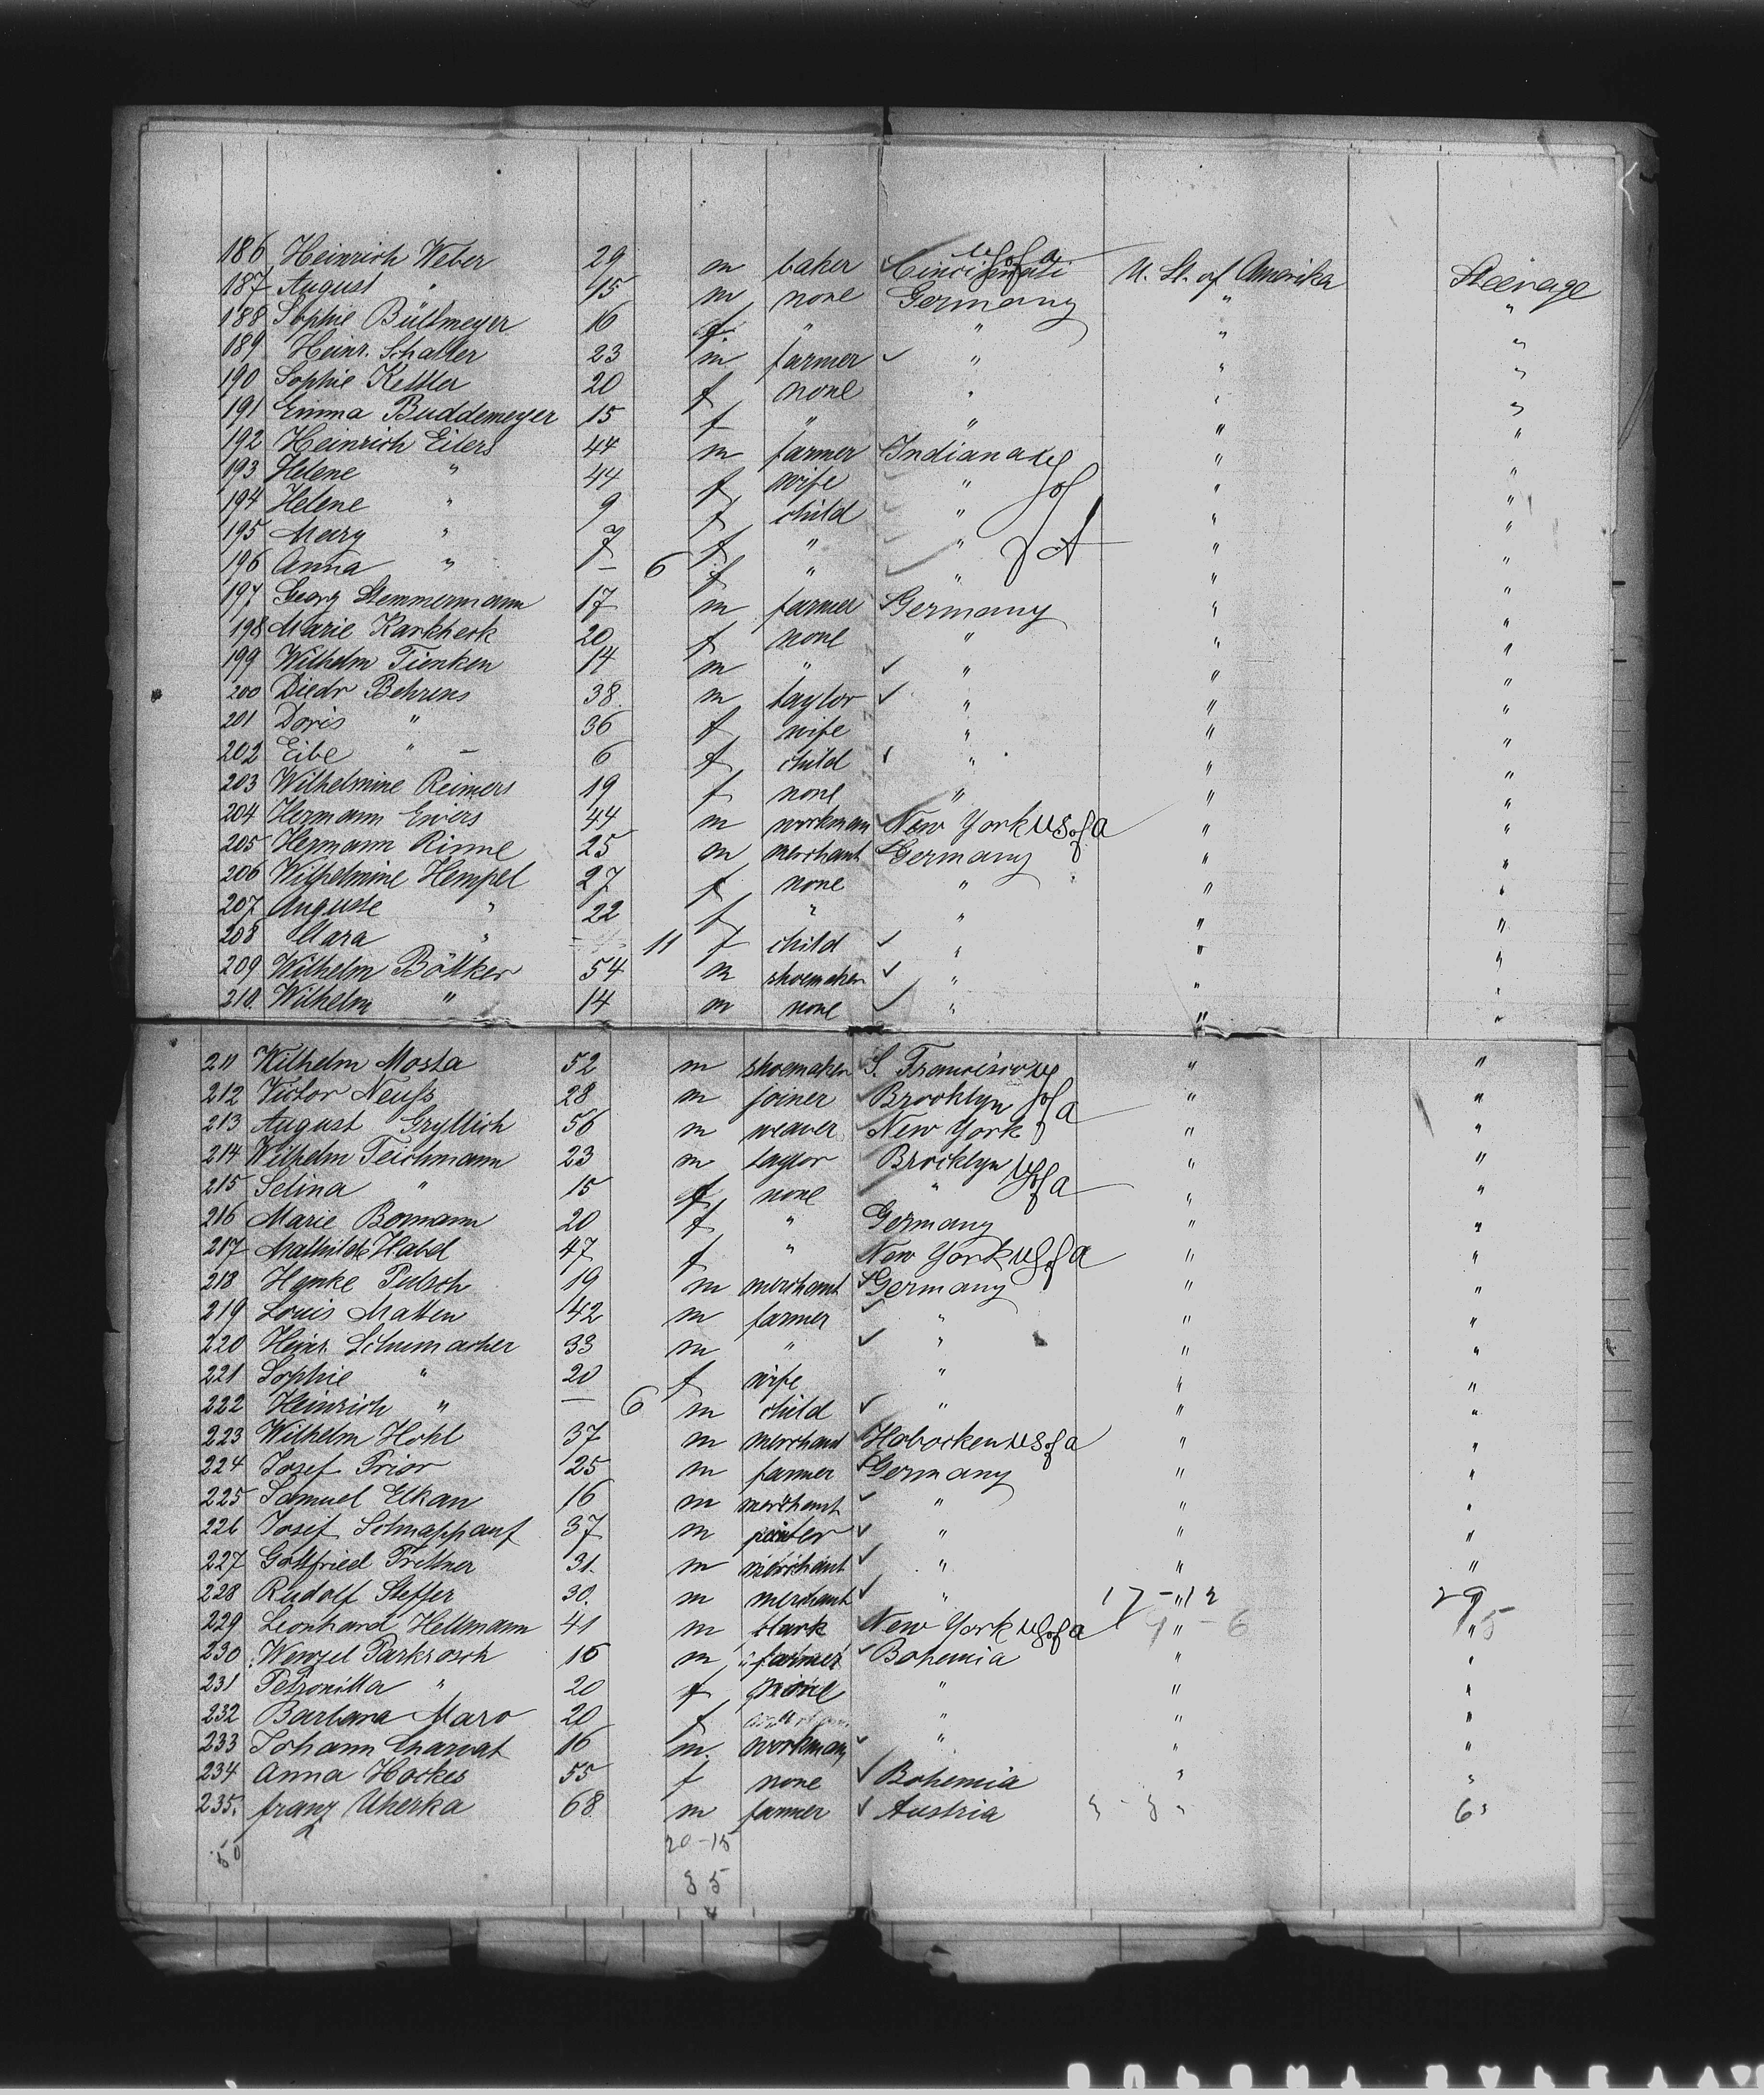 186 Heinrich Weber 29 m baker Cincinnati U S of A U. St. of Amerika Steerage
187 August " 15 m none Germany " "
188 Sophie Bültmeyer 16 f " " " "
189 Heinr. Schaller 23 m farmer " " "
190 Sophie Kettler 20 f none " " "
191 Emma Buddemeyer 15 f " " " "
192 Heinrich Eilers 44 m farmer Indiana U " "
193 Helene " 44 f wife " S of " "
194 Helene " 9 f child " " "
195 Mary " 7 f " " A " "
196 Anna " – 6 f " " " "
197 Georg Stemmermann 17 m farmer Germany " "
198 Marie Karkheck 20 f none " " "
199 Wilhelm Tienken 14 m " " " "
200 Diedr Behrens 38. m taylor " " "
201 Doris " 36 f wife " " "
202 Eibe " – 6 f child " " "
203 Wilhelmine Reimers 19 f none " " "
204 Hermann Ewers 44 m workman New York U S of a " "
205 Hermann Rinne 25 m merchant Germany " "
206 Wilhelmine Hempel 27 f none " " "
207 Auguste " 22 f " " " "
208 Clara " – 11 f child " " "
209 Wilhelm Böttker 54 m shoemaker " " "
210. Wilhelm " 14 m none " " "
211 Wilhelm Mosta 52 m shoemaker S. Francisco U " "
212 Victor Neuß 28 m joiner Brooklyn S of a " "
213 August Gryllich 56 m weaver New York " "
214 Wilhelm Teichmann 23 m taylor Brooklyn U S of a " "
215 Selina " 15 f none " " "
216 Marie Bomann 20 f " Germany " "
217 Mathilde Habel 47 f " New York U S of a " "
218 Henke 19 m merchant Germany " "
219 Louis Matten 42 m farmer " " "
220 Heinr. Schumacher 33 m " " " "
221 Sophie " 20 f wife " " "
222 Heinrich " – 6 m child " " "
223 Wilhelm Hohl 37 m merchant Hobocken U S of a " "
224 Josef Prior 25 m farmer Germany " "
225 Samuel Elkan 16 m merchant " " "
226 Josef Schnappauf 37 m " " "
227 Gottfried Prettner 31. m merchant " " "
228 Rudolf Steffer 30. m merchant " 17 – " 12 29
229 Leonhard Hellmann 41 m clark New York U S of a " 6 " 15
230 Wenzel Parkrosch 16 m farmer Bohemia " "
231 Petronilla " 20 f none " " "
232 Barbara Maro 20 f " " "
233 Johann Charvat 16 m. workman " " "
234 Anna Hockes 55 f none Bohemia " "
235. franz Uherka 68 m farmer Austria 3 – 3 " 6 "
50 20 – 15
35